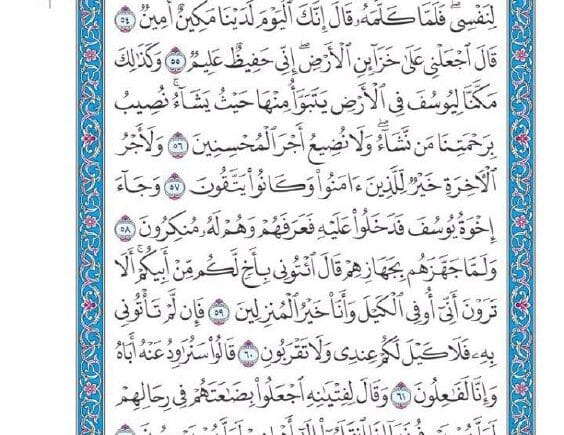 لِنَفْسِىۖ فَلَمَّا كَلَّمَهُۥ قَالَ إِنَّكَ ٱلْيَوْمَ لَدَيْنَا مَكِينٌ أَمِينٌ ٥٤
قَالَ ٱجْعَلْنِى عَلَىٰ خَزَآئِنِ ٱلْأَرْضِۖ إِنِّى حَفِيظٌ عَلِيمٌ ٥٥ وَكَذَٰلِكَ
مَكَّنَّا لِيُوسُفَ فِى ٱلْأَرْضِ يَتَبَوَّأُ مِنْهَا حَيْثُ يَشَآءُۚ نُصِيبُ
بِرَحْمَتِنَا مَن نَّشَآءُۖ وَلَا نُضِيعُ أَجْرَ ٱلْمُحْسِنِينَ ٥٦ وَلَأَجْرُ
ٱلْـَٔاخِرَةِ خَيْرٌ لِّلَّذِينَ ءَامَنُوا۟ وَكَانُوا۟ يَتَّقُونَ ٥٧ وَجَآءَ
إِخْوَةُ يُوسُفَ فَدَخَلُوا۟ عَلَيْهِ فَعَرَفَهُمْ وَهُمْ لَهُۥ مُنكِرُونَ ٥٨
وَلَمَّا جَهَّزَهُم بِجَهَازِهِمْ قَالَ ٱئْتُونِى بِأَخٍ لَّكُم مِّنْ أَبِيكُمْۚ أَلَا
تَرَوْنَ أَنِّىٓ أُوفِى ٱلْكَيْلَ وَأَنَا۠ خَيْرُ ٱلْمُنزِلِينَ ٥٩ فَإِن لَّمْ تَأْتُونِى
بِهِۦ فَلَا كَيْلَ لَكُمْ عِندِى وَلَا تَقْرَبُونِ ٦٠ قَالُوا۟ سَنُرَٰوِدُ عَنْهُ أَبَاهُ
وَإِنَّا لَفَٰعِلُونَ ٦١ وَقَالَ لِفِتْيَٰنِهِ ٱجْعَلُوا۟ بِضَٰعَتَهُمْ فِى رِحَالِهِمْ